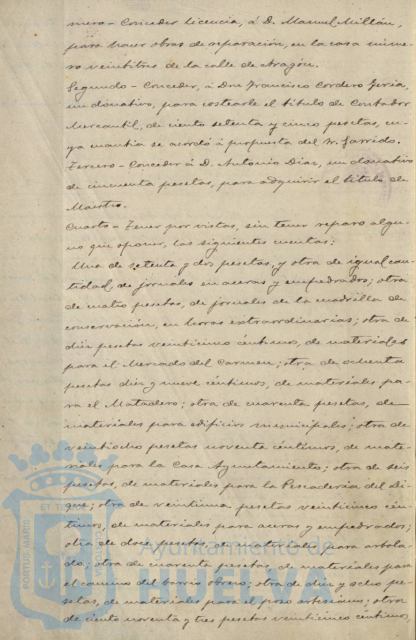 mero - Conceder licencia, á D. Manuel Millán,
para hacer obras de reparación, en la casa núme-
ro veintitres de la calle de Aragón.
Segundo - Conceder, á Don Francisco Cordero Feria,
un donativo, para costearle el título de Contador
Mercantil, de ciento setenta y cinco pesetas, cu-
ya cuantia se acordó á propuesta del Sr. Garrido.
Tercero - Conceder á D. Antonio Diaz, un donativo
de cincuenta pesetas, para adquirir el título de
Maestro.
Cuarto - Tener por vistas, sin tener reparo algu-
no que oponer, las siguientes cuentas:
Una de setenta y dos pesetas, y otra de igual can-
tidad, de jornales en aceras y empedrados; otra
de cuatro pesetas, de jornales de la cuadrilla de
conservación, en horas extraordinarias; otra de
diez pesetas veinticinco céntimos, de materiales
para el Mercado del Carmen; otra de ochenta
pesetas diez y nueve céntimos, de materiales pa-
ra el Matadero; otra de cuarenta pesetas, de
materiales para edificios municipales; otra de
veintiocho pesetas noventa céntimos, de mate-
riales para la Casa Ayuntamiento; otra de seis
pesetas, de materiales para la Pescaderia del di-
que; otra de veintiuna pesetas veinticinco cén-
timos, de materiales para aceras y empedrados;
otra de doce pesetas, de materiales para arbola-
do; otra de cuarenta pesetas, de materiales para
el camino del barrio obrero; otra de diez y ocho pe-
setas, de materiales para el pozo artesiano; otra
de ciento noventa y tres pesetas veinticinco céntimos,
PORTUS MARIS ET T
Ayuntamiento de
HUELVA